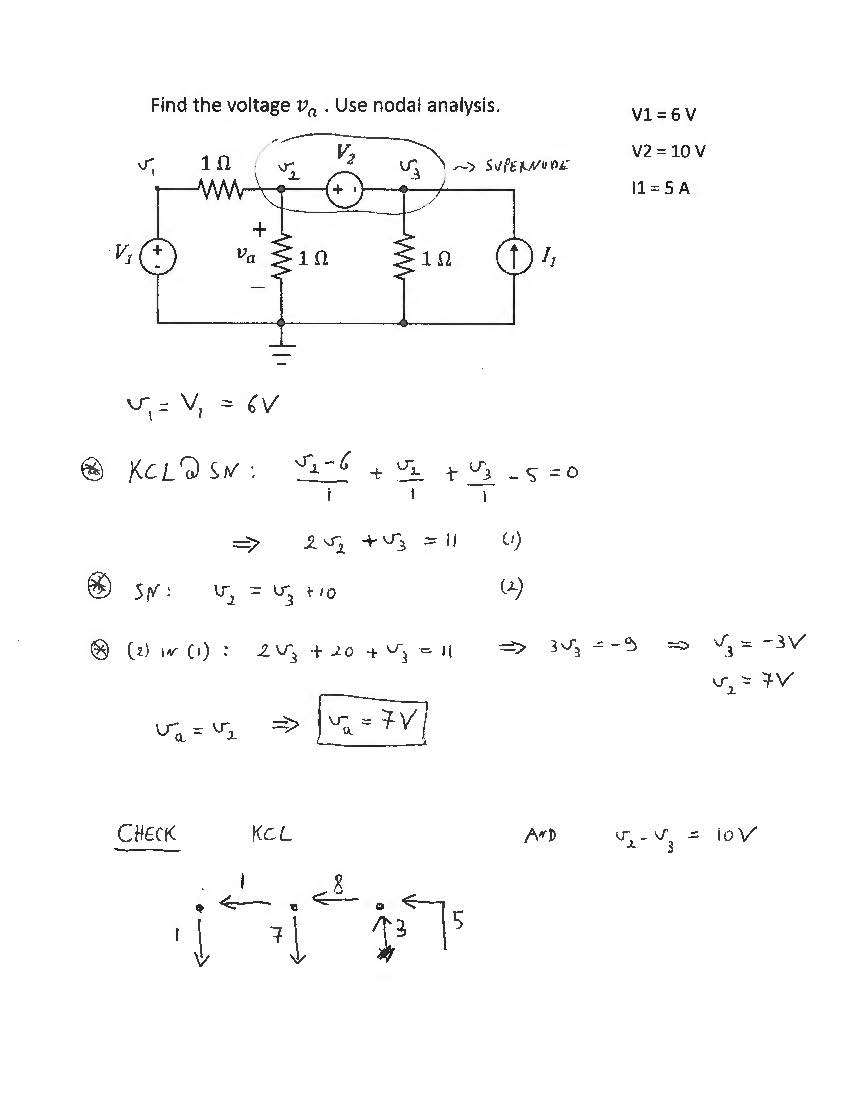 Find the voltage vₐ . Use nodal analysis.
V1 = 6 V
V2 = 10 V
I1 = 5 A
v₁ 1 Ω v₂ V₂ v₃ ~> SUPERNODE
+ -
V₁ + - + vₐ - 1 Ω 1 Ω I₁
v₁ = V₁ = 6V
⊛ KCL @ SN : (v₂-6)/1 + v₂/1 + v₃/1 - 5 = 0
⇒ 2v₂ + v₃ = 11 (1)
⊛ SN : v₂ = v₃ + 10 (2)
⊛ (2) IN (1) : 2v₃ + 20 + v₃ = 11 ⇒ 3v₃ = -9 ⇒ v₃ = -3V
v₂ = 7V
vₐ = v₂ ⇒ vₐ = 7V
CHECK KCL AND v₂ - v₃ = 10V
1 8
1 7 3 5